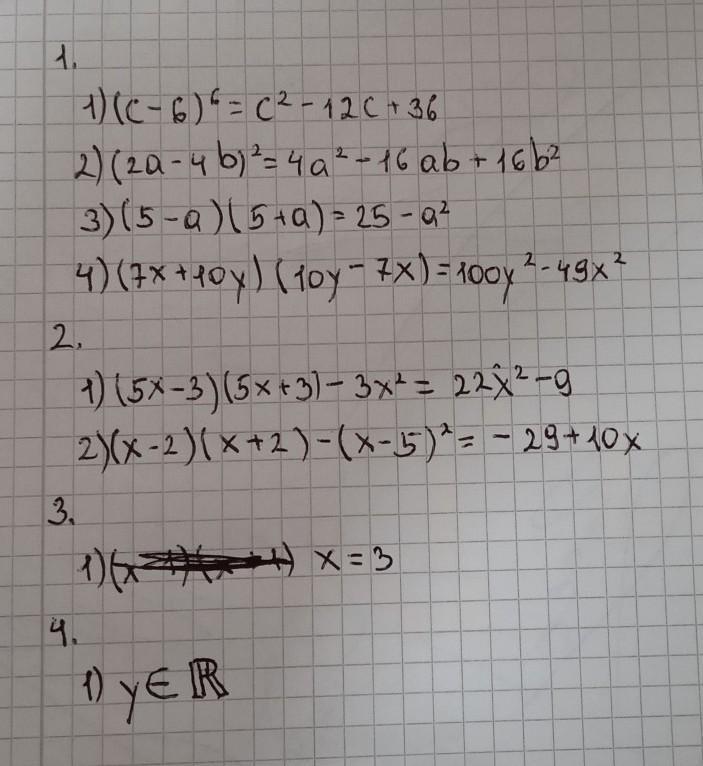 1.
1) (c - 6)⁶ = c² - 12c + 36
2) (2a - 4b)² = 4a² - 16ab + 16b²
3) (5 - a)(5 + a) = 25 - a²
4) (7x + 10y) (10y - 7x) = 100y² - 49x²
2.
1) (5x - 3)(5x + 3) - 3x² = 22x² - 9
2) (x - 2)(x + 2) - (x - 5)² = - 29 + 10x
3.
1) x = 3
4.
1) y ∈ ℝ